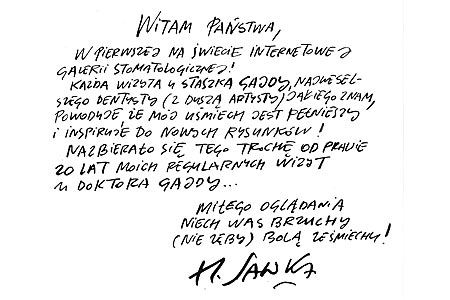 WITAM PAŃSTWA,
W PIERWSZEJ NA ŚWIECIE INTERNETOWEJ
GALERII STOMATOLOGICZNEJ!
KAŻDA WIZYTA U STASZKA GAJDY, NAJWESEL-
SZEGO DENTYSTY (Z DUSZĄ ARTYSTY) JAKIEGO ZNAM,
POWODUJE ŻE MÓJ UŚMIECH JEST PEŁNIEJSZY
I INSPIRUJE DO NOWYCH RYSUNKÓW!
NAZBIERAŁO SIĘ TEGO TROCHĘ OD PRAWIE
20 LAT MOICH REGULARNYCH WIZYT
U DOKTORA GAJDY...
MIŁEGO OGLĄDANIA
NIECH WAS BRZUCHY
(NIE ZĘBY) BOLĄ ZE ŚMIECHU!
H. SAWKA